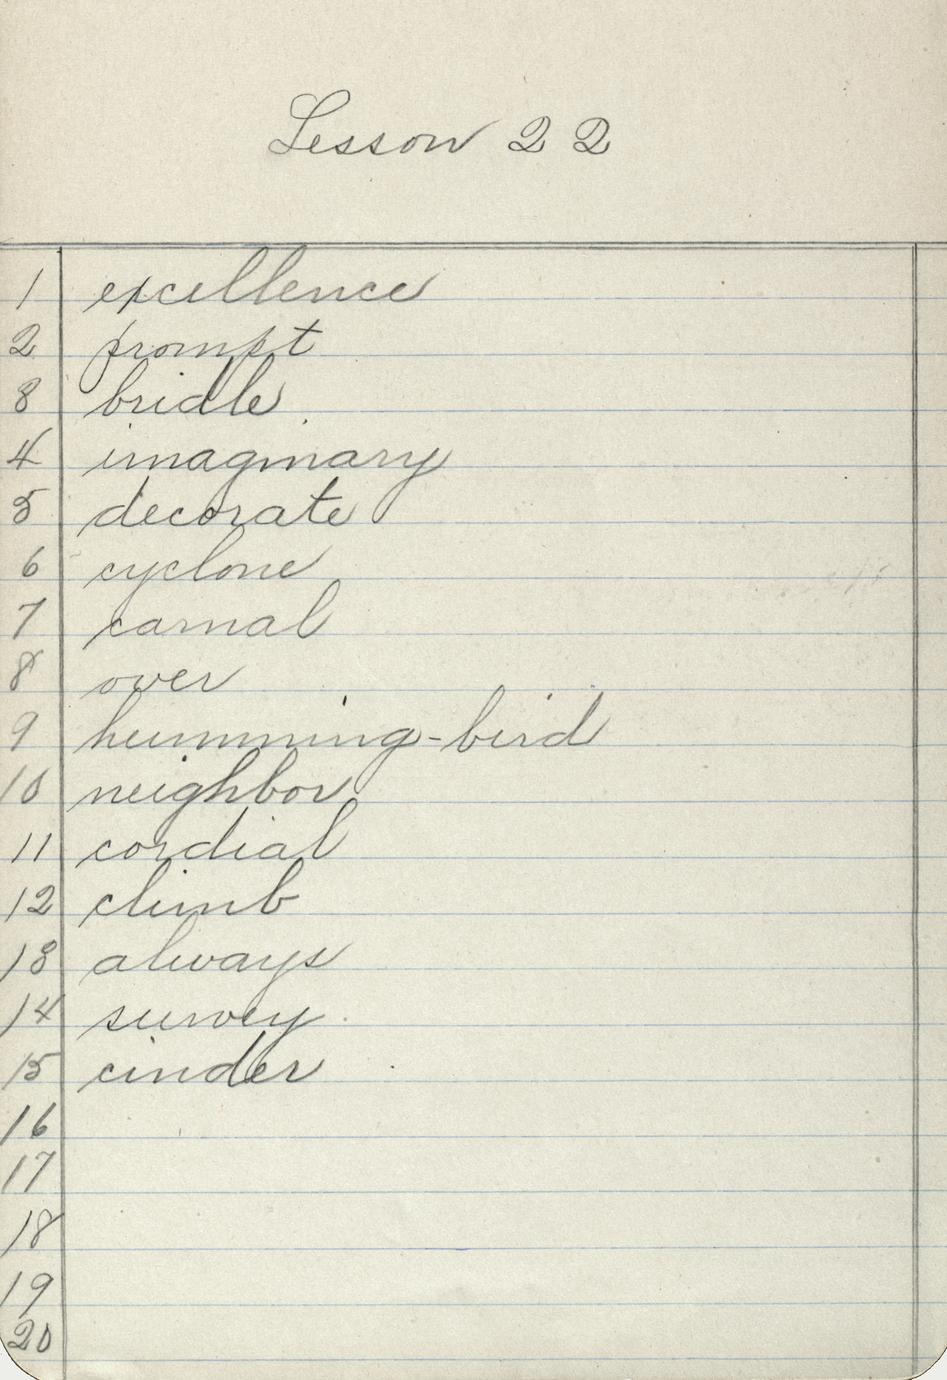 Lesson 22
1 excellence
2 prompt
3 bridle
4 imaginary
5 decorate
6 cyclone
7 carnal
8 over
9 humming-bird
10 neighbor
11 cordial
12 climb
13 always
14 survey
15 cinder
16
17
18
19
20